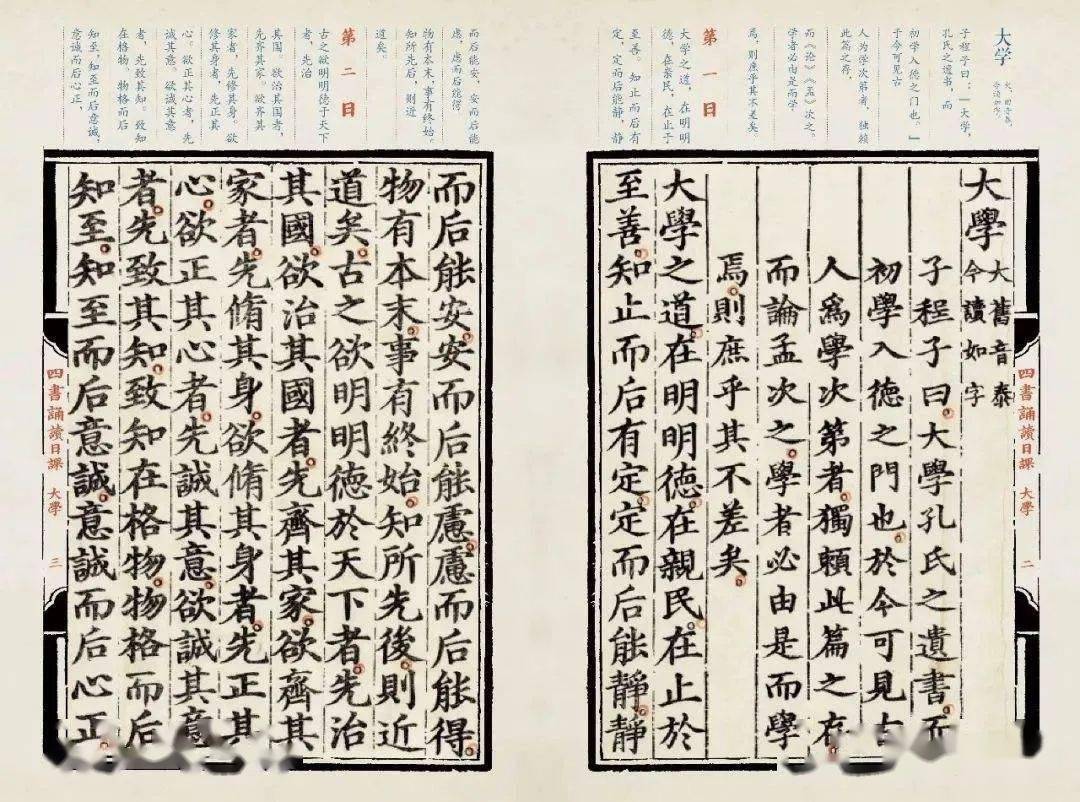 大学
大，旧音泰，
今读如字。
子程子曰：「大学，
孔氏之遗书，而
初学入德之门也。」
于今可见古
人为学次第者，独赖
此篇之存，
而《论》《孟》次之。
学者必由是而学
焉，则庶乎其不差矣
第一日
大学之道，在明明
德，在亲民，在止于
至善。知止而后有
定，定而后能静，静
四書誦讀日課 大學 二
大學 大舊音泰
今讀如字
子程子曰。大學孔氏之遺書。而
初學入德之門也。於今可見古
人爲學次第者。獨賴此篇之存。
而論孟次之。學者必由是而學
焉。則庶乎其不差矣。
大學之道。在明明德。在親民。在止於
至善。知止而后有定。定而后能靜。靜
而后能安，安而后能
虑，虑而后能得
物有本末，事有终始。
知所先后，则近
道矣。
第二日
古之欲明明德于天下
者，先治
其国。欲治其国者，
先齐其家，欲齐其
家者，先修其身。欲
修其身者，先正其
心。欲正其心者，先
诚其意，欲诚其意
者，先致其知。致知
在格物 物格而后
知至，知至而后意诚，
意诚而后心正，
而后能安。安而后能慮。慮而后能得。
物有本末。事有終始。知所先後。則近
道矣。古之欲明明德於天下者。先治
其國。欲治其國者。先齊其家。欲齊其
家者。先脩其身。欲脩其身者。先正其
心。欲正其心者。先誠其意。欲誠其意
者。先致其知。致知在格物。物格而后
知至。知至而后意誠。意誠而后心正。
四書誦讀日課 大學 三